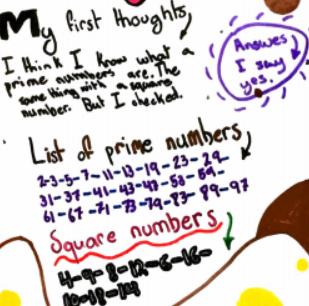 My first thoughts
I think I know what a
prime numbers are. The
same thing with a square
number. But I checked.
Answes
I say
yes.
List of prime numbers
2-3-5-7-11-13-19-23-29-
31-37-41-43-47-53-59-
61-67-71-73-79-83-89-97
Square numbers
4-9-8-12-6-16-
10-18-14